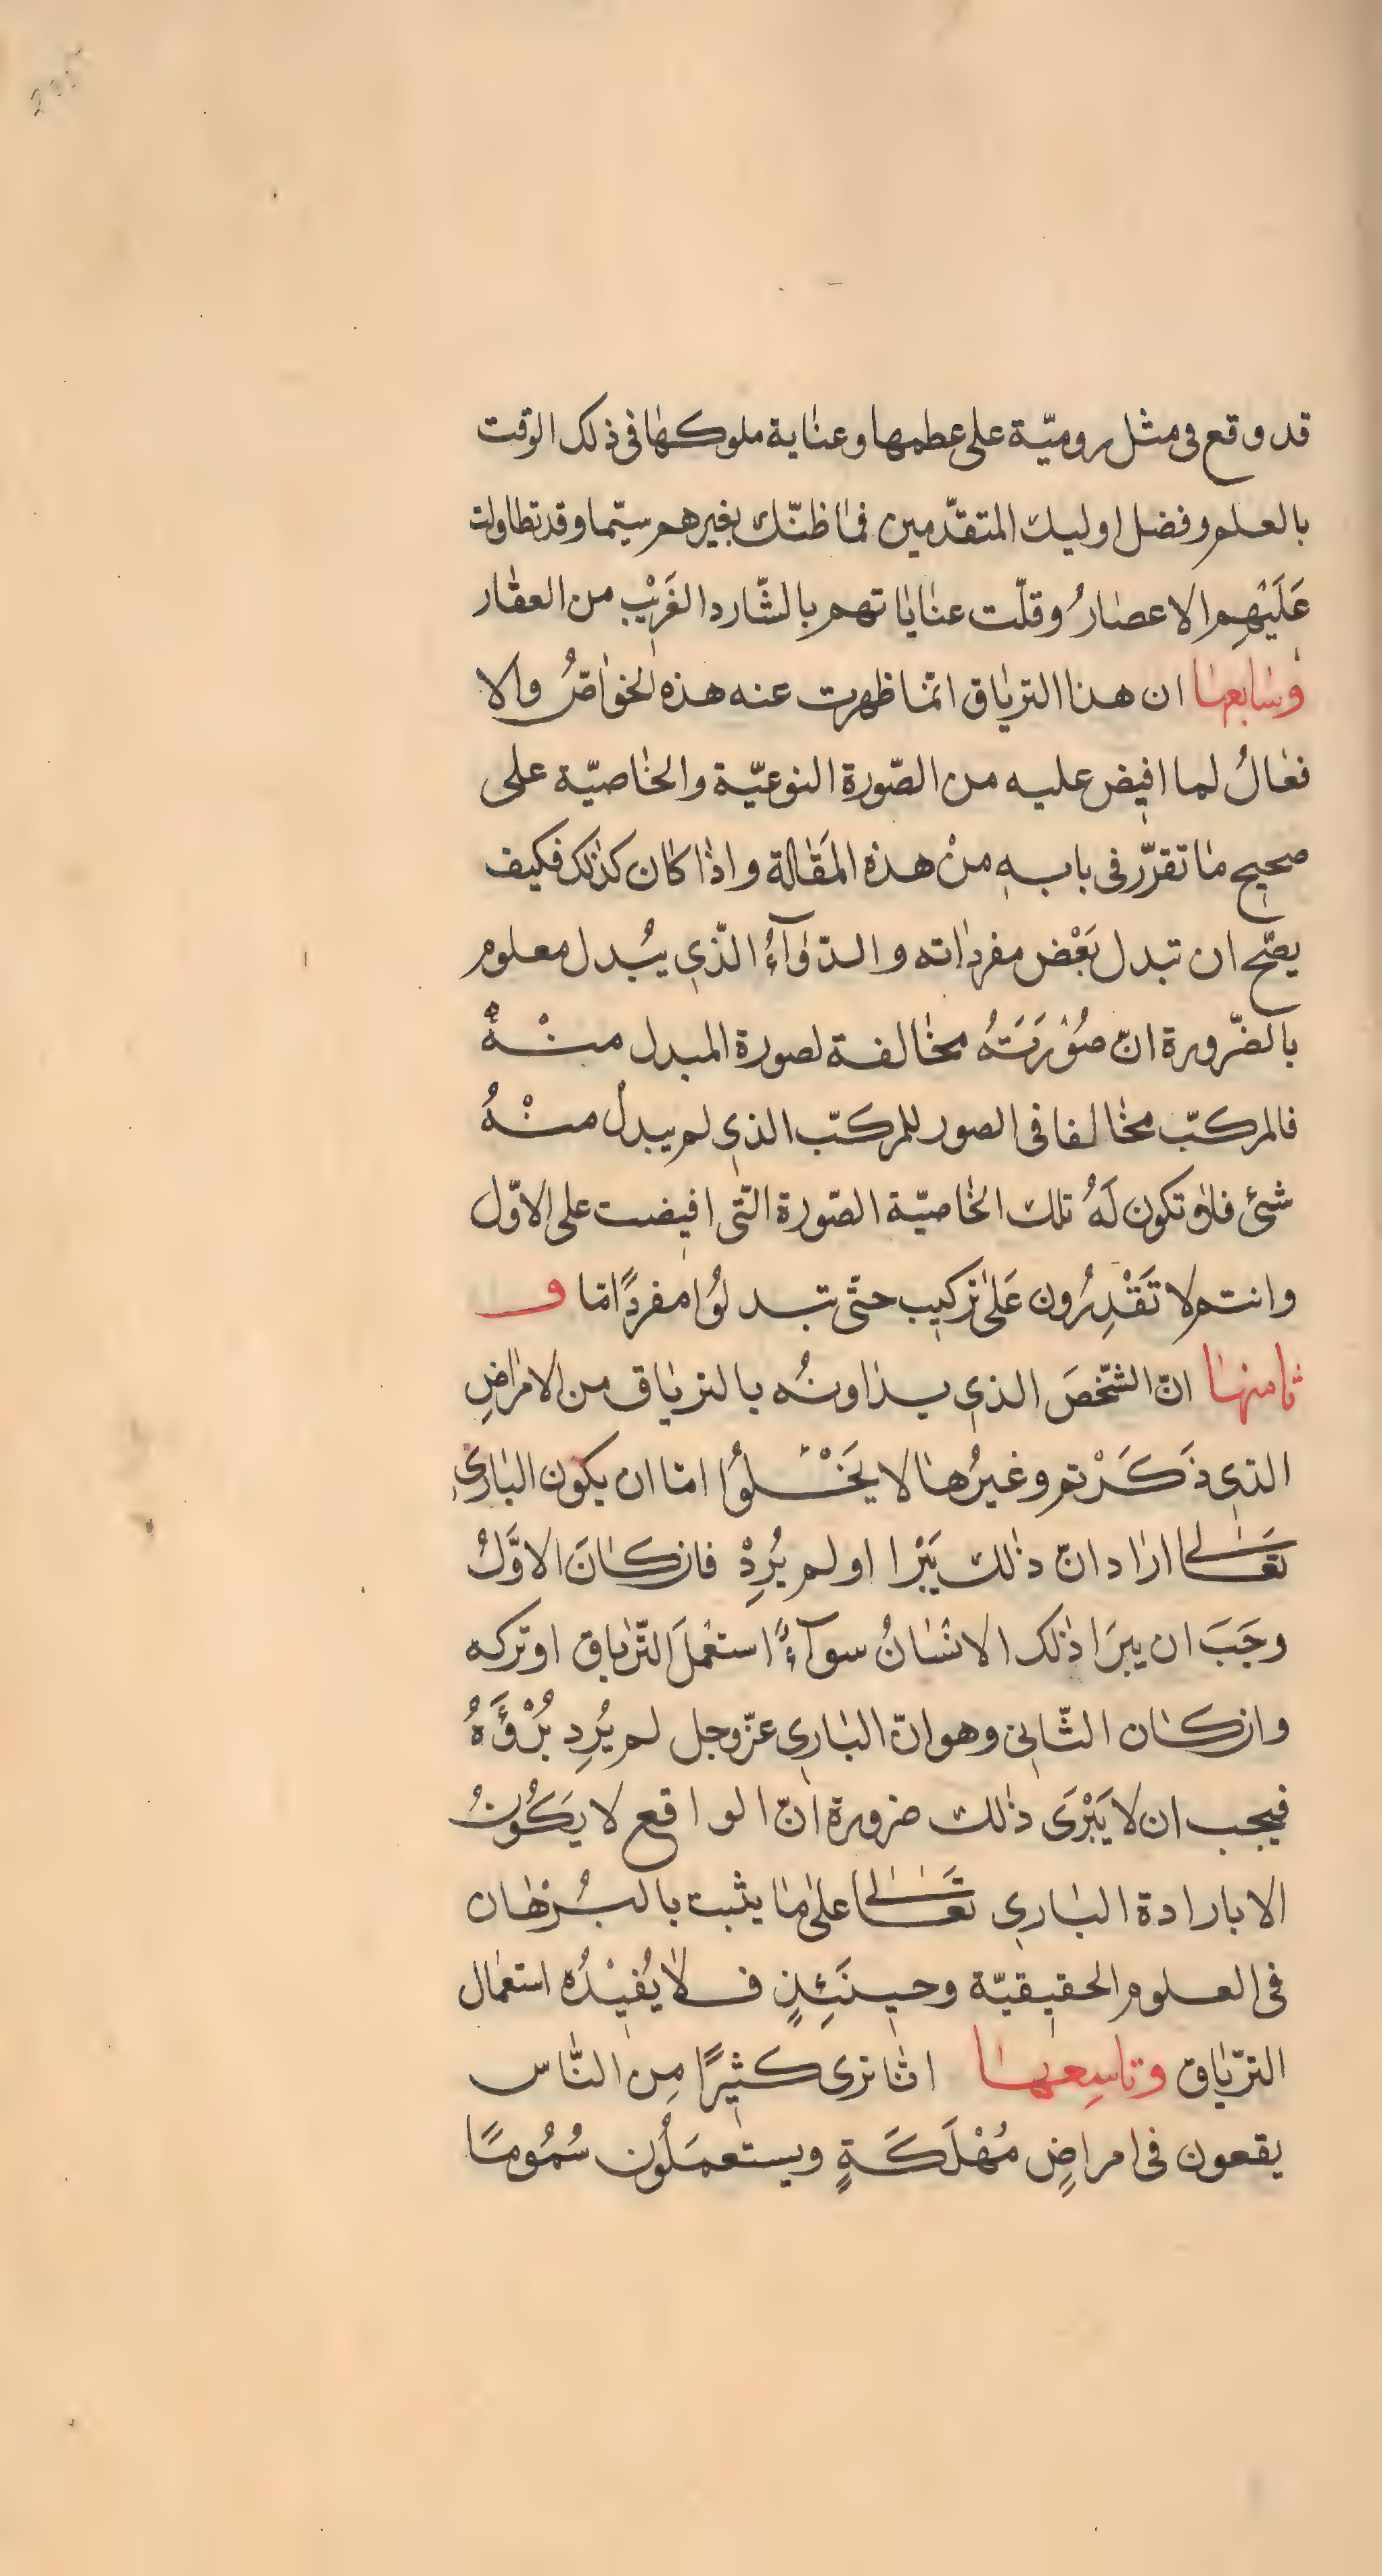 قد وقع فى مثل روميّة على عطمها وعناية ملوكها فى ذلك الوقت
بالعلم وفضل اوليك المتقدّمين فما ظنّك بغيرهم سيّما وقد تطاولت
عَلَيْهِم الاعصارُ وقلّت عناياتهم بالشّارد الغَرِيْب من العقار
وسابعها ان هذا الترياق انّما ظهرت عنه هذه الخواصُّ والا
فعالُ لما افيض عليه من الصّورة النوعيّة والخاصيّة على
صحيح ما تقرّر فى بابه منْ هذه المَقالة واذا كان كذلك فكيف
يصّح ان تبدل بَعْض مفرداته والدّوآءُ الّذي يُبدل معلوم
بالضّرورة انّ صُوْرَتَهُ مخالفة لصورة المبدل منْهُ
فالمركبّ مخالفا فى الصور للمركبّ الذي لم يبدلُ منْهُ
شئ فلا تكون لَهُ تلك الخاصيّة الصّورة التّى افيضت على الاوّل
وانتم لا تَقْدِرُون عَلى تركيب حتّى تبدلوُا مفردًا مّا و
ثامنها انّ الشّخصَ الذي يداونُه بالترياق من الامراضِ
التي ذَكَرْتم وغيرُها لا يَخْلوُا امّا ان يكون البارئ
تعَالى اراد انّ ذلك يَبْرا او لم يُرِدْ فان كانَ الاوَّلُ
وجَبَ ان يبرَا ذلك الانسانُ سوآءً استعْملَ التّرياق او تركه
وان كان الثّانى وهو انّ الباري عزّ وجل لم يُرِد بُرْؤَهُ
فيجب ان لا يَبْرَى ذلك ضرورة انّ الواقع لا يَكُونُ
الا بارادة الباري تعَالى على ما يثبت بالبُرْهان
فى العلوم الحقيقيّة وحينَئِذٍ فلا يُفيْدُه استعمال
الترّياق وتاسِعها انّا نرى كثيرًا مِن النّاس
يقعون فى امراضٍ مُهْلَكَةٍ ويستعمَلُون سُمُومًا